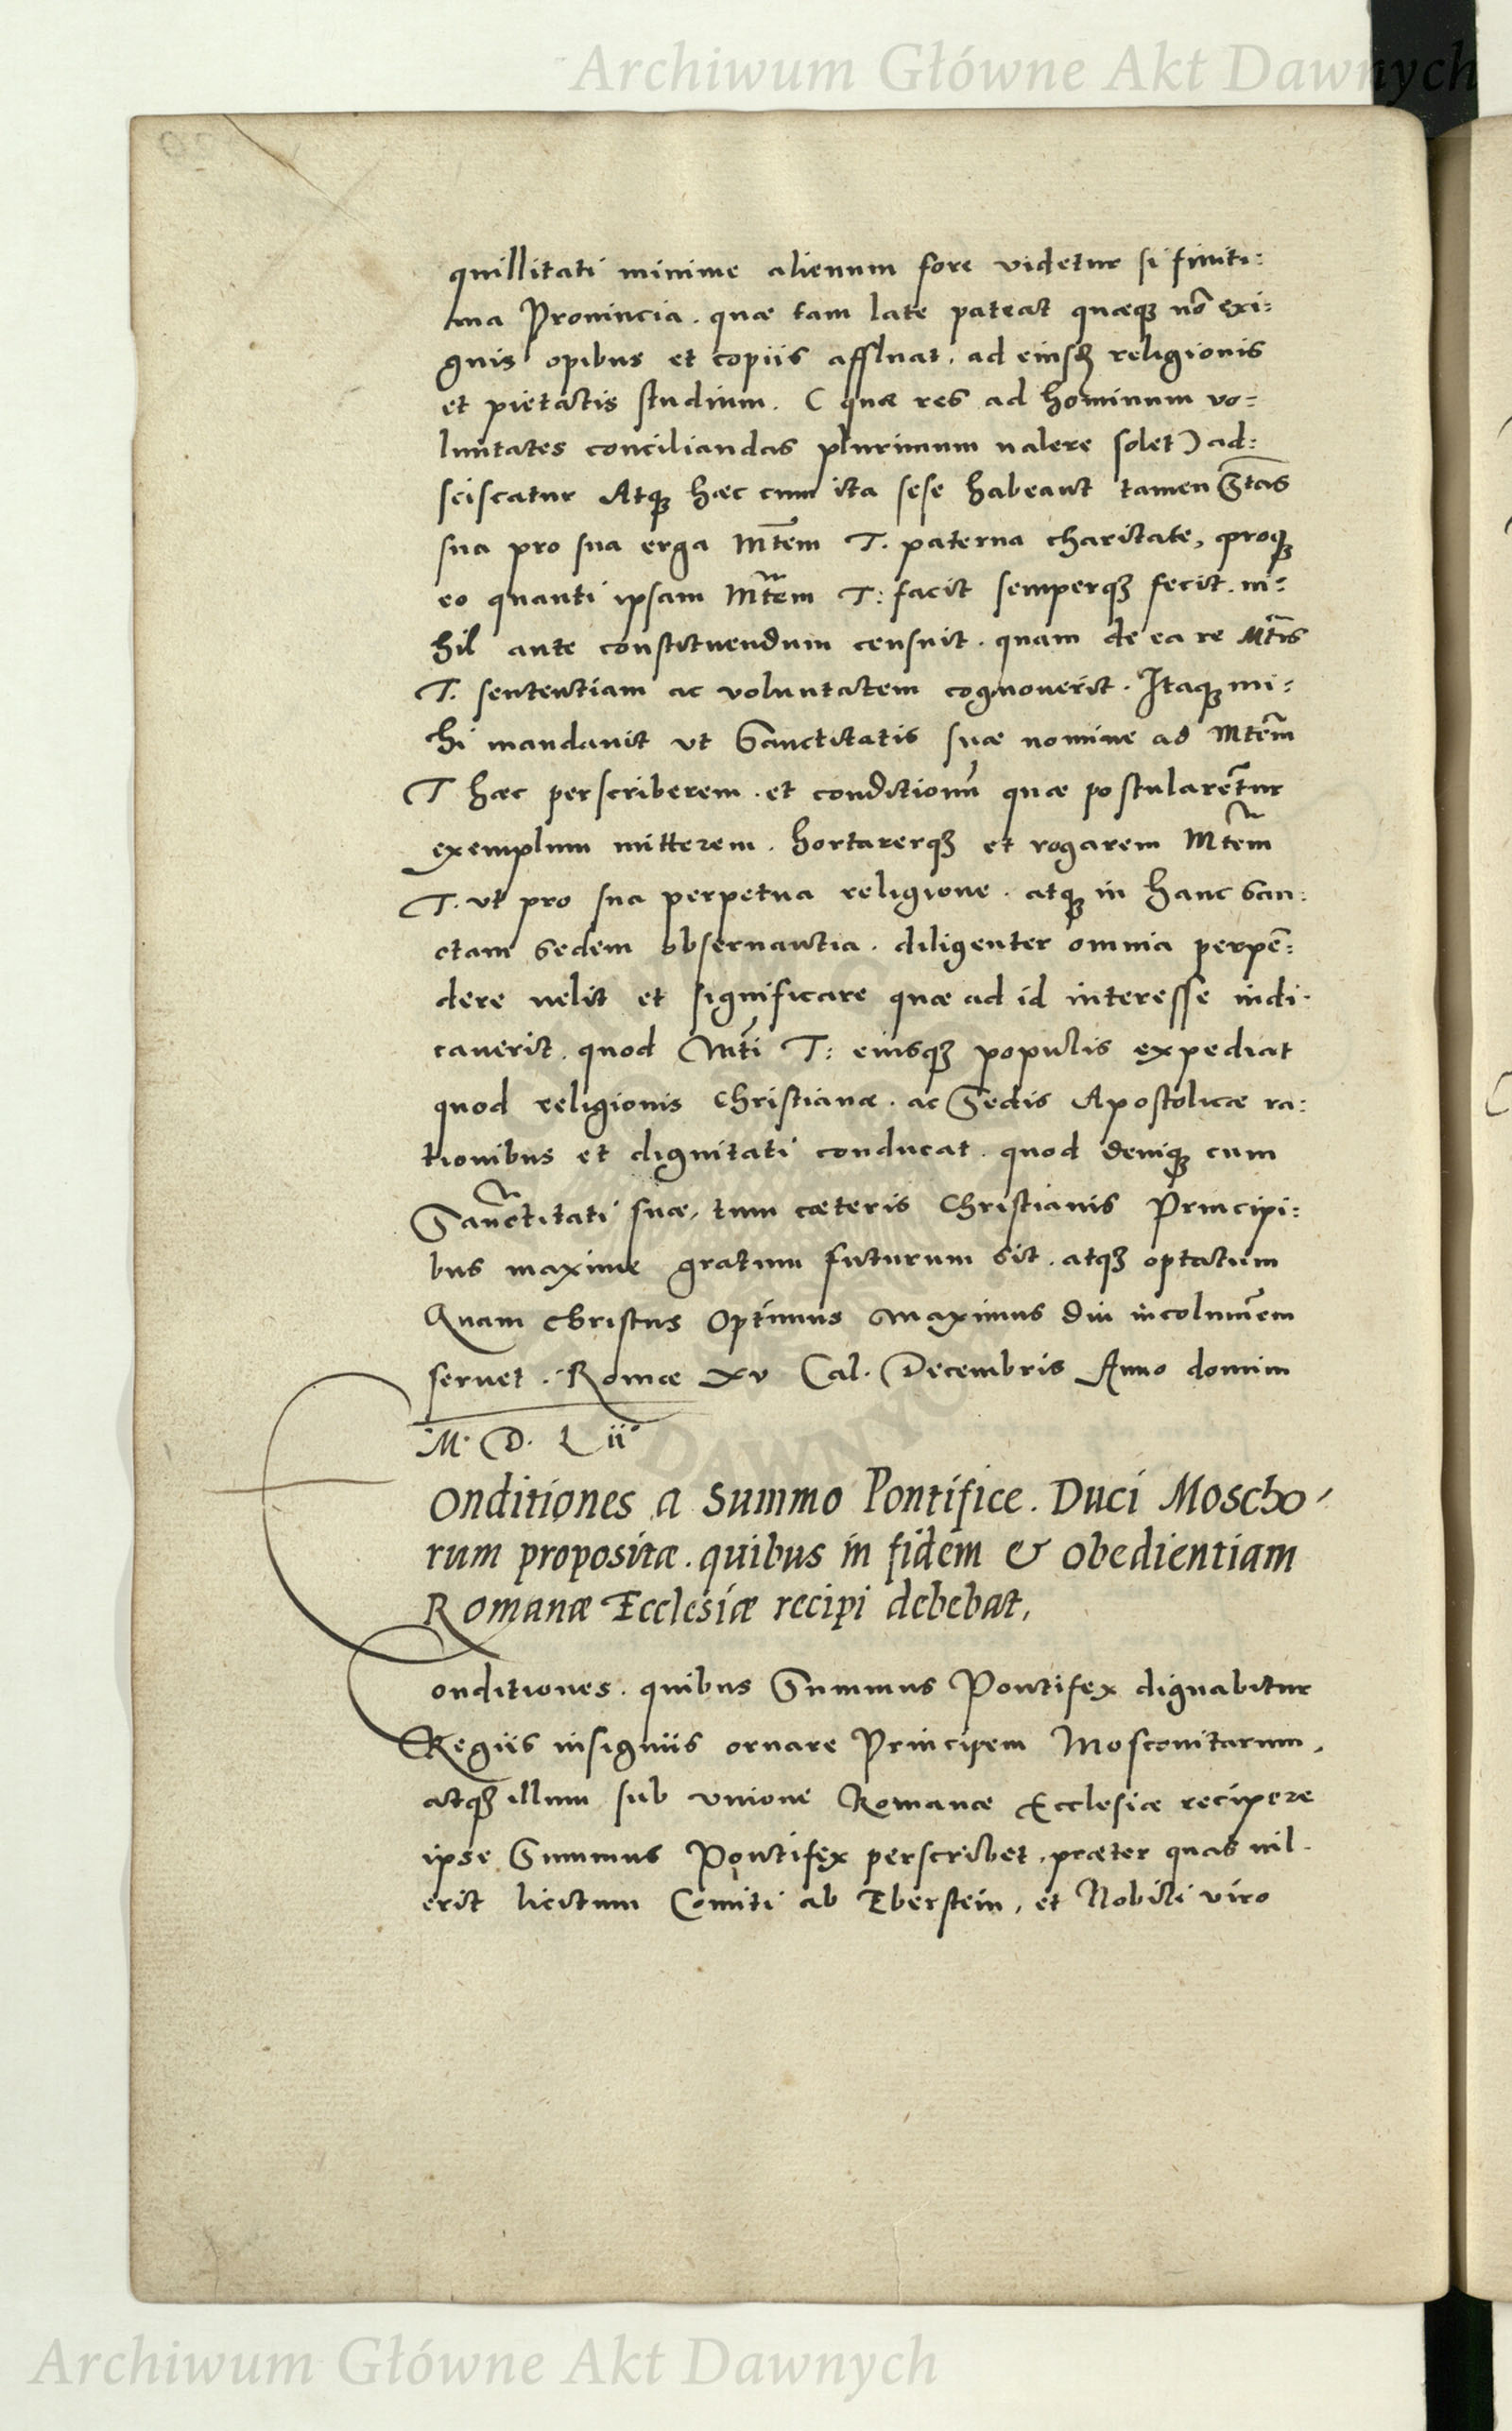 Archiwum Główne Akt Dawnych
quillitati minime alienum fore videtur si finiti:
ma Prouincia. quæ tam late pateat quæq3 nō exi:
guis opibus et copiis affluat. ad eiusdē religionis
et pietatis studium. ( quæ res ad hominum vo:
luntates conciliandas plurimum ualere solet) ad:
sciscatur Atq3 hæc cum ita sese habeant tamen S̄tas
sua pro sua erga Mtēm T. paterna charitate, proq3
eo quanti ipsam Mtēm T: facit semperq3 fecit. ni:
hil ante constituendum censuit. quam de ea re Mtīs
T. sententiam ac voluntatem cognouerit. Itaq3 mi:
hi mandauit vt Sanctitatis suæ nomine ad Mtēm
T hæc perscriberem. et conditionū quæ postularētur
exemplum mitterem. hortarerq3 et rogarem Mtēm
T. vt pro sua perpetua religione. atq3 in hanc san:
ctam sedem obseruantia. diligenter omnia perpē:
dere uelit et significare quæ ad id interesse iudi:
cauerit. quod Mtī T: eiusq3 populis expediat
quod religionis Christianæ. ac Sedis Apostolicæ ra:
tionibus et dignitati conducat. quod deniq3 cum
Sanctitati suæ, tum cæteris Christianis Principi:
bus maxime gratum futurum sit. atq3 optatum
Quam Christus Optimus Maximus diu incolumem
seruet. Romæ xv Cal. Decembris Anno domini
M. D. L ii
Conditiones a Summo Pontifice. Duci Moscho-
rum propositæ. quibus in fidem & obedientiam
Romanæ Ecclesiæ recipi debebat.
Conditiones. quibus Summus Pontifex dignabitur
Regiis insigniis ornare Principem Moscouitarum,
atq3 illum sub vnione Romanæ Ecclesiæ recipere
ipse Summus Pontifex perscribet, præter quas nil
erit licitum Comiti ab Eberstein, et Nobili viro
Archiwum Główne Akt Dawnych